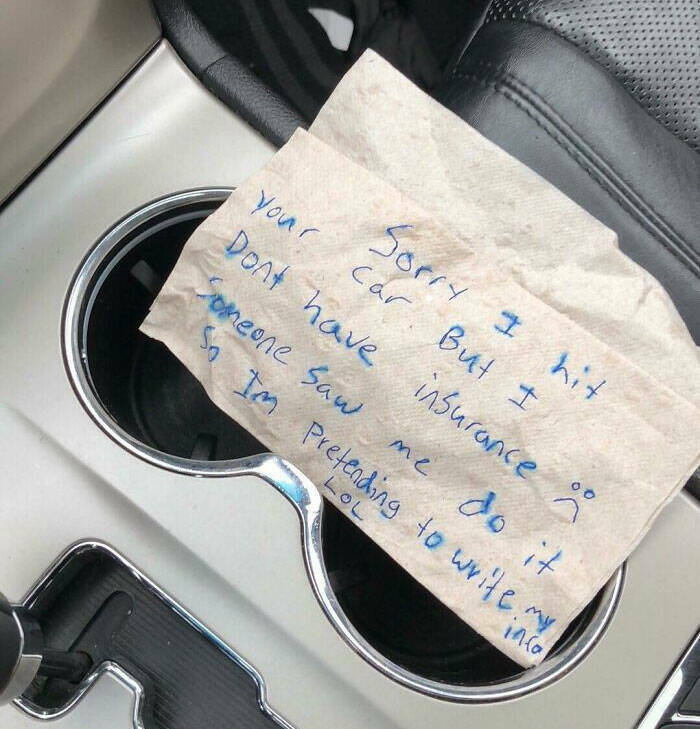 Sorry I hit
your car But I
Dont have insurance ☹
Someone saw me do it
So Im Pretending to write my
LOL info